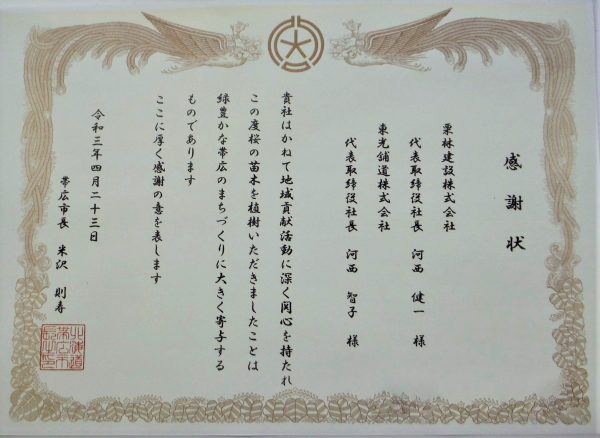 感謝状
栗林建設株式会社
代表取締役社長 河西 健一 様
東光舗道株式会社
代表取締役社長 河西 智子 様
貴社はかねて地域貢献活動に深く関心を持たれ
この度桜の苗木を植樹いただきましたことは
緑豊かな帯広のまちづくりに大きく寄与する
ものであります
ここに厚く感謝の意を表します
令和三年四月二十三日
帯広市長 米沢 則寿
北海道
帯広市
長之印